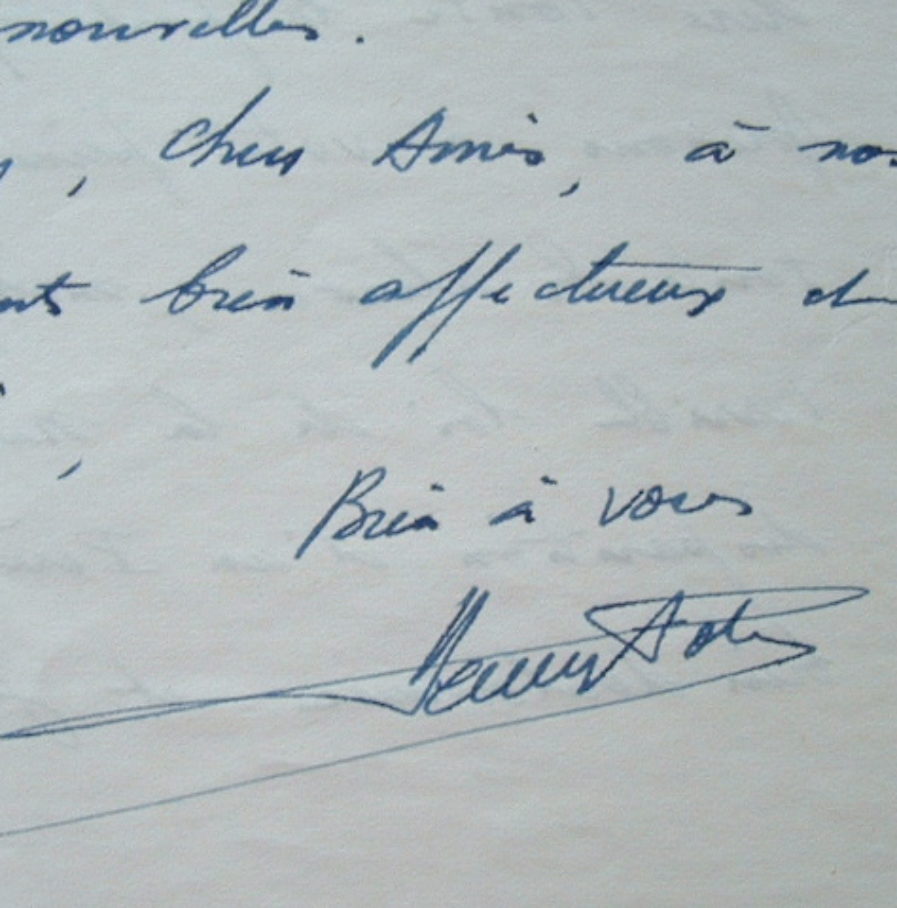 nouvelles.
, chers Amis, à nos
nts bien affectueux de
,
Bien à vous
Henry